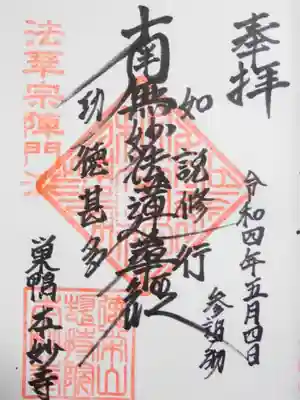 奉拝
令和四年五月四日
参詣
如説修行
南無妙法蓮華経
功徳甚多
法華宗陣門流
巣鴨本妙寺
徳栄山
総持院